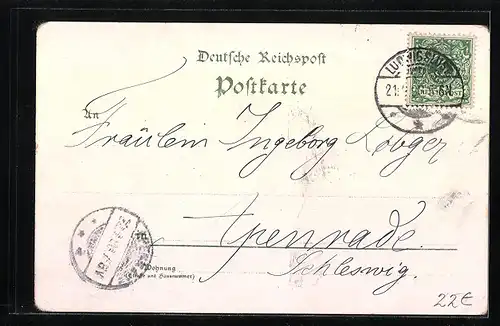 Deutsche Reichspost
Postkarte
LUDWIGSLUST
21.
An
Fräulein Ingeborg
Apenrade
Schleswig.
Wohnung
(Straße und Hausnummer)
22€